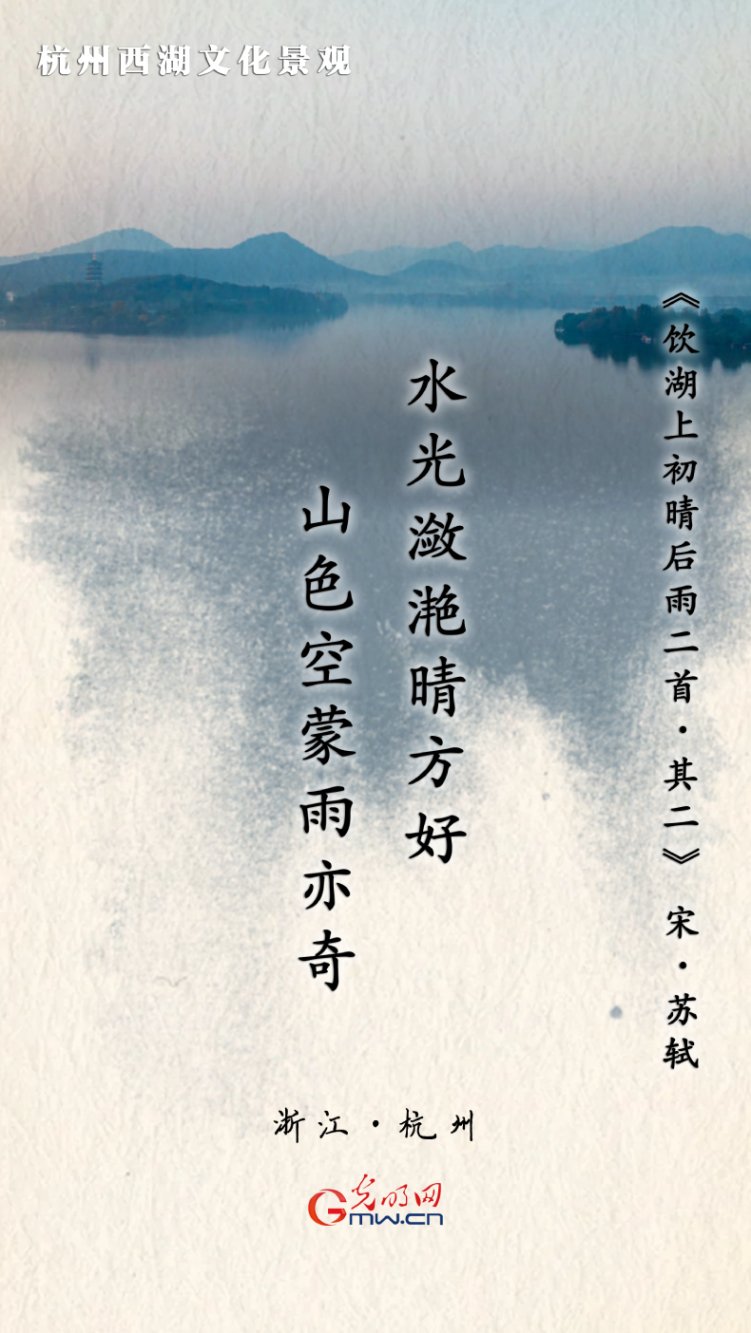 杭州西湖文化景观
《饮湖上初晴后雨二首·其二》 宋·苏轼
水光潋滟晴方好
山色空蒙雨亦奇
浙江·杭州
光明网
GMW.CN